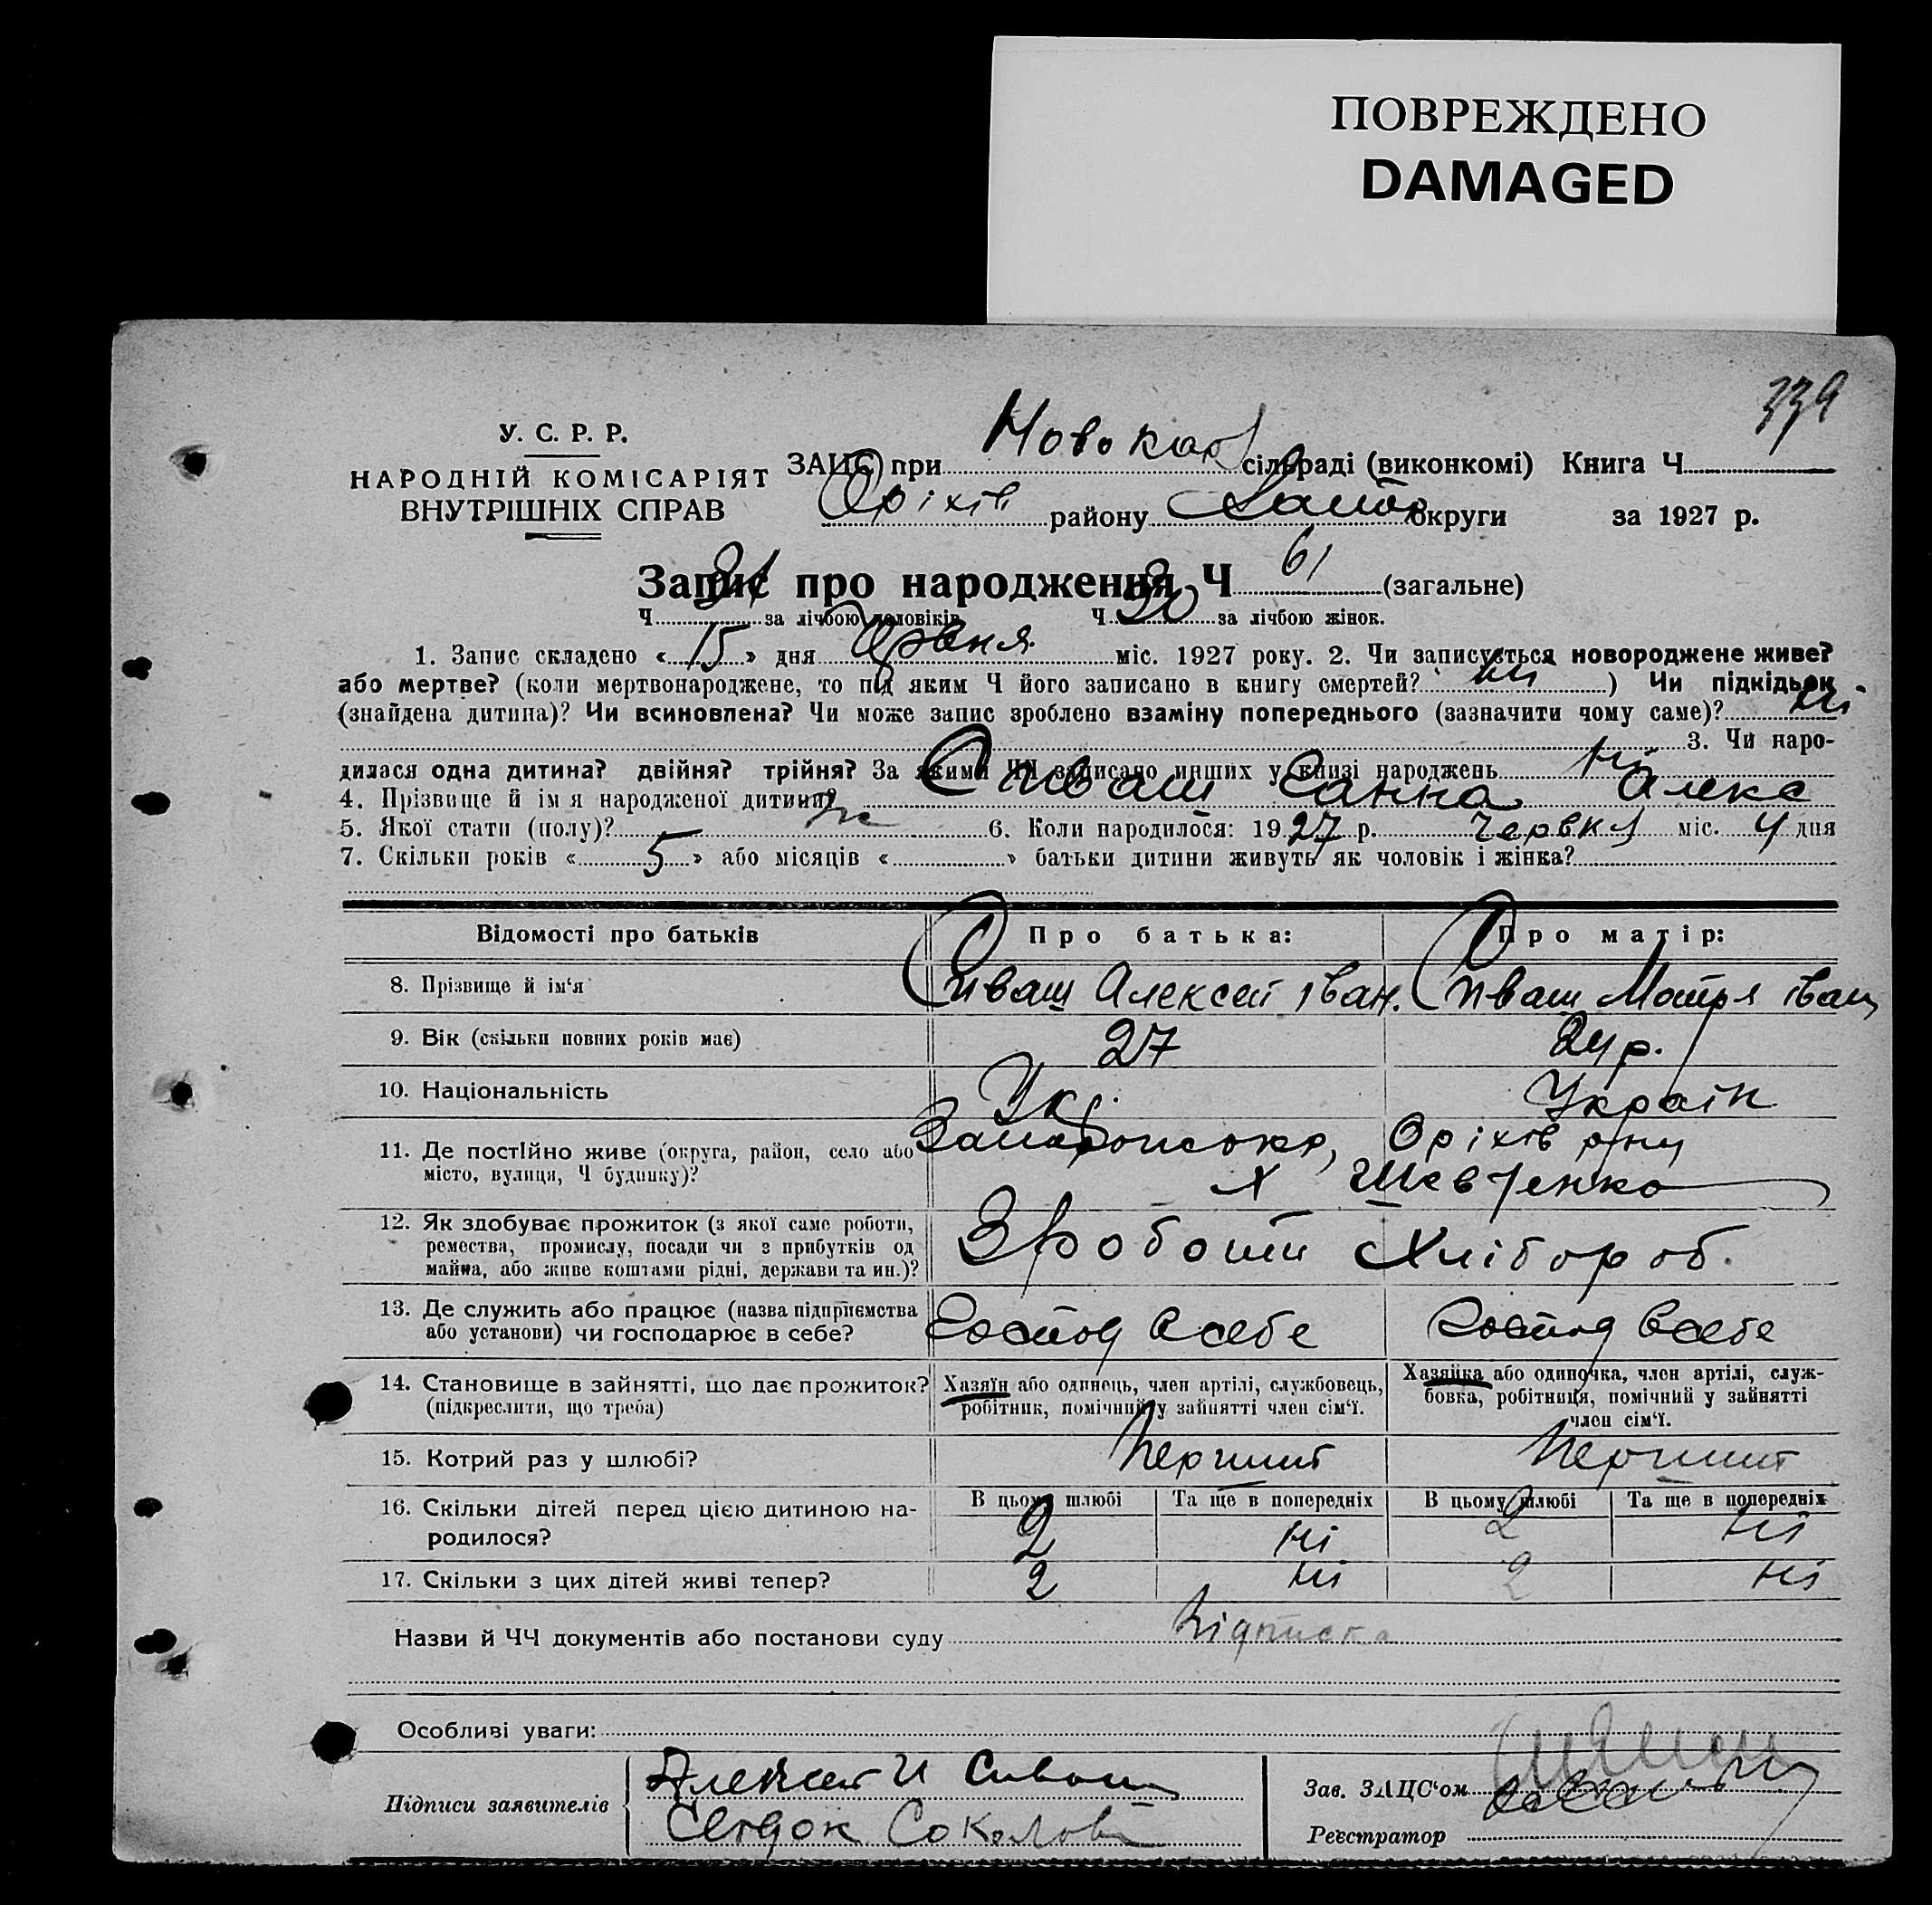 ПОВРЕЖДЕНО
DAMAGED
339
У. С. Р. Р.
НАРОДНІЙ КОМІСАРІЯТ
ВНУТРІШНІХ СПРАВ
ЗАЦС при Новокар сільраді (виконкомі) Книга Ч.
Оріхів району Запор округи за 1927 р.
Запис про народження Ч 61 (загальне)
Ч 31 за лічбою чоловіків Ч 30 за лічбою жінок.
1. Запис складено « 15 » дня Червня міс. 1927 року. 2. Чи записується новороджене живе?
або мертве? (коли мертвонароджене, то під яким Ч його записано в книгу смертей? ні ) Чи підкідьок
(знайдена дитина)? Чи всиновлена? Чи може запис зроблено взаміну попереднього (зазначити чому саме)? ні
3. Чи наро-
дилася одна дитина? двійня? трійня? За якими ЧЧ записано инших у книзі народжень ні
4. Прізвище й ім я народженої дитини? Сиваш Ганна Алекс
5. Якої стати (полу)? ж 6. Коли народилося: 19 27 р. Червня міс. 4 дня
7. Скільки років « 5 » або місяців « » батьки дитини живуть як чоловік і жінка?
Відомості про батьків Про батька: Про матір:
8. Прізвище й ім'я Сиваш Алексей Іван. Сиваш Мотря Іван
9. Вік (скільки повних років має) 27 24 р.
10. Національність Укр. Україн
11. Де постійно живе (округа, район, село або Запарожсько, Оріхів р-ну
місто, вулиця, Ч будинку)? х Шевченко
12. Як здобуває прожиток (з якої саме роботи,
ремества, промислу, посади чи з прибутків од
майна, або живе коштами рідні, держави та ин.)? Зроботи Хлібороб.
13. Де служить або працює (назва підприємства
або установи) чи господарює в себе? Господ Всебе Господ Всебе
14. Становище в зайнятті, що дає прожиток? Хазяїн або одинець, член артілі, службовець, Хазяйка або одиночка, член артілі, служ-
(підкреслити, що треба) робітник, помічний у зайнятті член сім'ї. бовка, робітниця, помічний у зайнятті
член сім'ї.
15. Котрий раз у шлюбі? Перший Перший
16. Скільки дітей перед цією дитиною на- В цьому шлюбі Та ще в попередніх В цьому шлюбі Та ще в попередніх
родилося? 2 ні 2 ні
17. Скільки з цих дітей живі тепер? 2 ні 2 ні
Назви й ЧЧ документів або постанови суду Підписка
Особливі уваги:
Підписи заявителів Алексей И Сиваш Зав. ЗАЦС'ом
Свідок Соколов Реєстратор